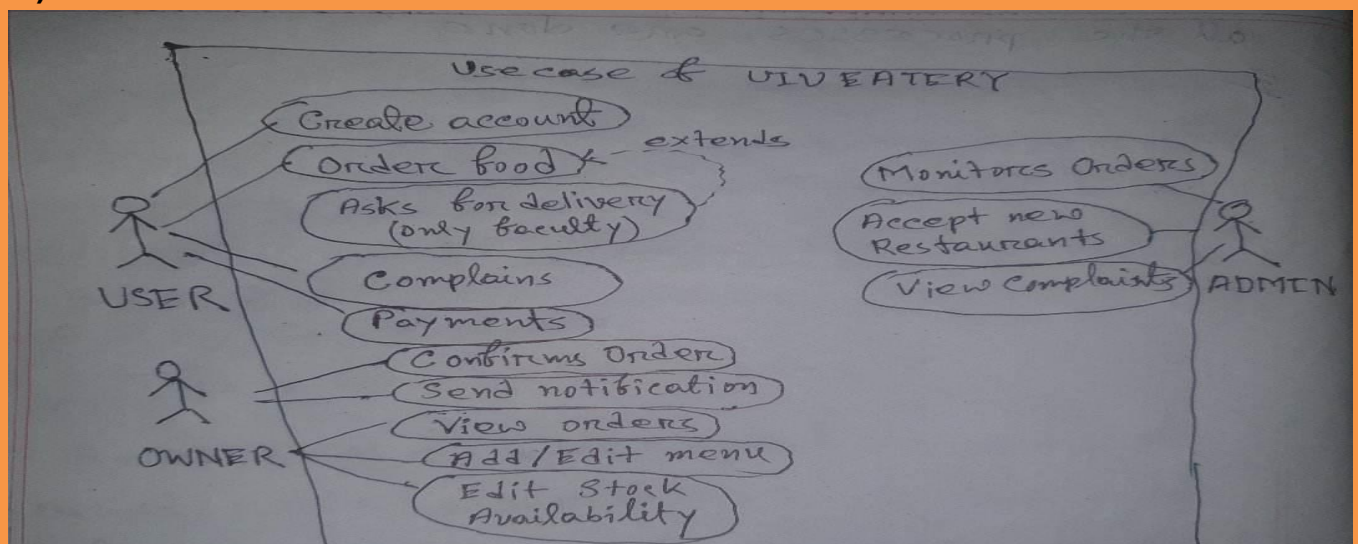 Use case of UIU EATERY
Create account
Order food
extends
Asks for delivery
(only faculty)
Complains
Payments
USER
Confirms Order
Send notification
View orders
Add/Edit menu
Edit Stock
Availability
OWNER
Monitors Orders
Accept new
Restaurants
View Complaints
ADMIN